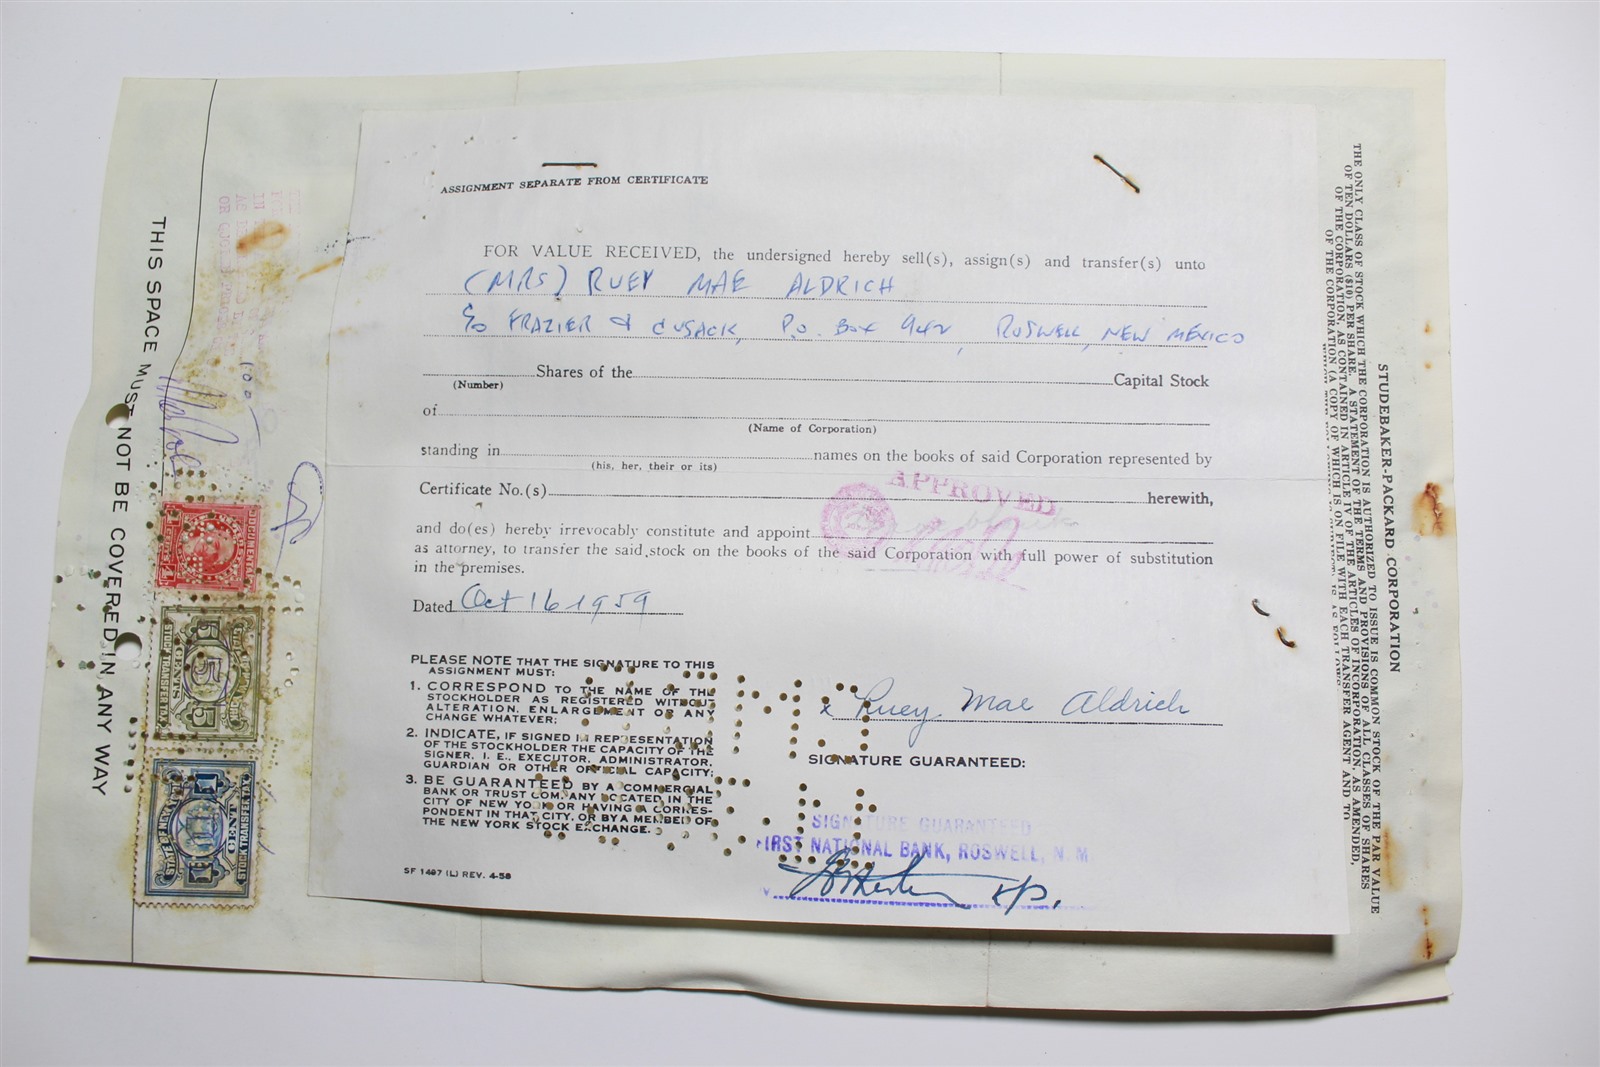 ASSIGNMENT SEPARATE FROM CERTIFICATE
FOR VALUE RECEIVED, the undersigned hereby sell(s), assign(s) and transfer(s) unto
(MRS) RUEY MAE ALDRICH
c/o FRAZIER & CUSACK, P.O. Box 942, ROSWELL, NEW MEXICO
Shares of the Capital Stock
(Number)
of
(Name of Corporation)
standing in names on the books of said Corporation represented by
(his, her, their or its)
Certificate No.(s) herewith,
APPROVED
and do(es) hereby irrevocably constitute and appoint
as attorney, to transfer the said stock on the books of the said Corporation with full power of substitution
in the premises.
Dated Oct 16 1959
PLEASE NOTE THAT THE SIGNATURE TO THIS
ASSIGNMENT MUST:
1. CORRESPOND TO THE NAME OF THE
STOCKHOLDER AS REGISTERED WITHOUT
ALTERATION, ENLARGEMENT OR ANY
CHANGE WHATEVER;
2. INDICATE, IF SIGNED IN REPRESENTATION
OF THE STOCKHOLDER THE CAPACITY OF THE
SIGNER, I. E., EXECUTOR, ADMINISTRATOR,
GUARDIAN OR OTHER OFFICIAL CAPACITY;
3. BE GUARANTEED BY A COMMERCIAL
BANK OR TRUST COMPANY LOCATED IN THE
CITY OF NEW YORK OR HAVING A CORRES-
PONDENT IN THAT CITY, OR BY A MEMBER OF
THE NEW YORK STOCK EXCHANGE.
SF 1497 (L) REV. 4-58
x Ruey Mae Aldrich
SIGNATURE GUARANTEED:
SIGNATURE GUARANTEED
FIRST NATIONAL BANK, ROSWELL, N. M
V.P.
THIS SPACE MUST NOT BE COVERED IN ANY WAY
100
DOCUMENTARY
4 CENTS 4
5
5 CENTS 5
STOCK TRANSFER TAX
STATE OF NEW YORK
1 CENT 1
STOCK TRANSFER TAX
STUDEBAKER-PACKARD CORPORATION
THE ONLY CLASS OF STOCK WHICH THE CORPORATION IS AUTHORIZED TO ISSUE IS COMMON STOCK OF THE PAR VALUE
OF TEN DOLLARS ($10) PER SHARE. A STATEMENT OF THE TERMS AND PROVISIONS OF ALL CLASSES OF SHARES
OF THE CORPORATION, AS CONTAINED IN ARTICLE IV OF THE ARTICLES OF INCORPORATION, AS AMENDED,
OF THE CORPORATION (A COPY OF WHICH IS ON FILE WITH EACH TRANSFER AGENT AND TO